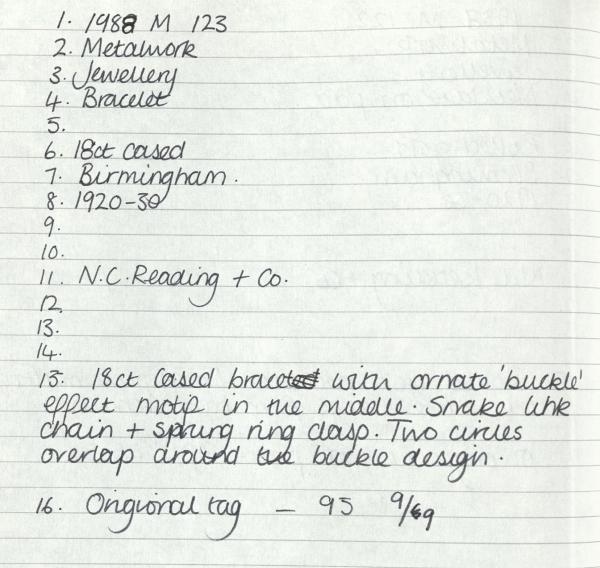 1. 1988 M 123
2. Metalwork
3. Jewellery
4. Bracelet
5.
6. 18ct cased
7. Birmingham.
8. 1920-30
9.
10.
11. N.C. Reading + Co.
12.
13.
14.
15. 18ct cased bracelet with ornate 'buckle'
effect motif in the middle. Snake link
chain + sprung ring clasp. Two circles
overlap around the buckle design.
16. Origional tag - 95 9/69